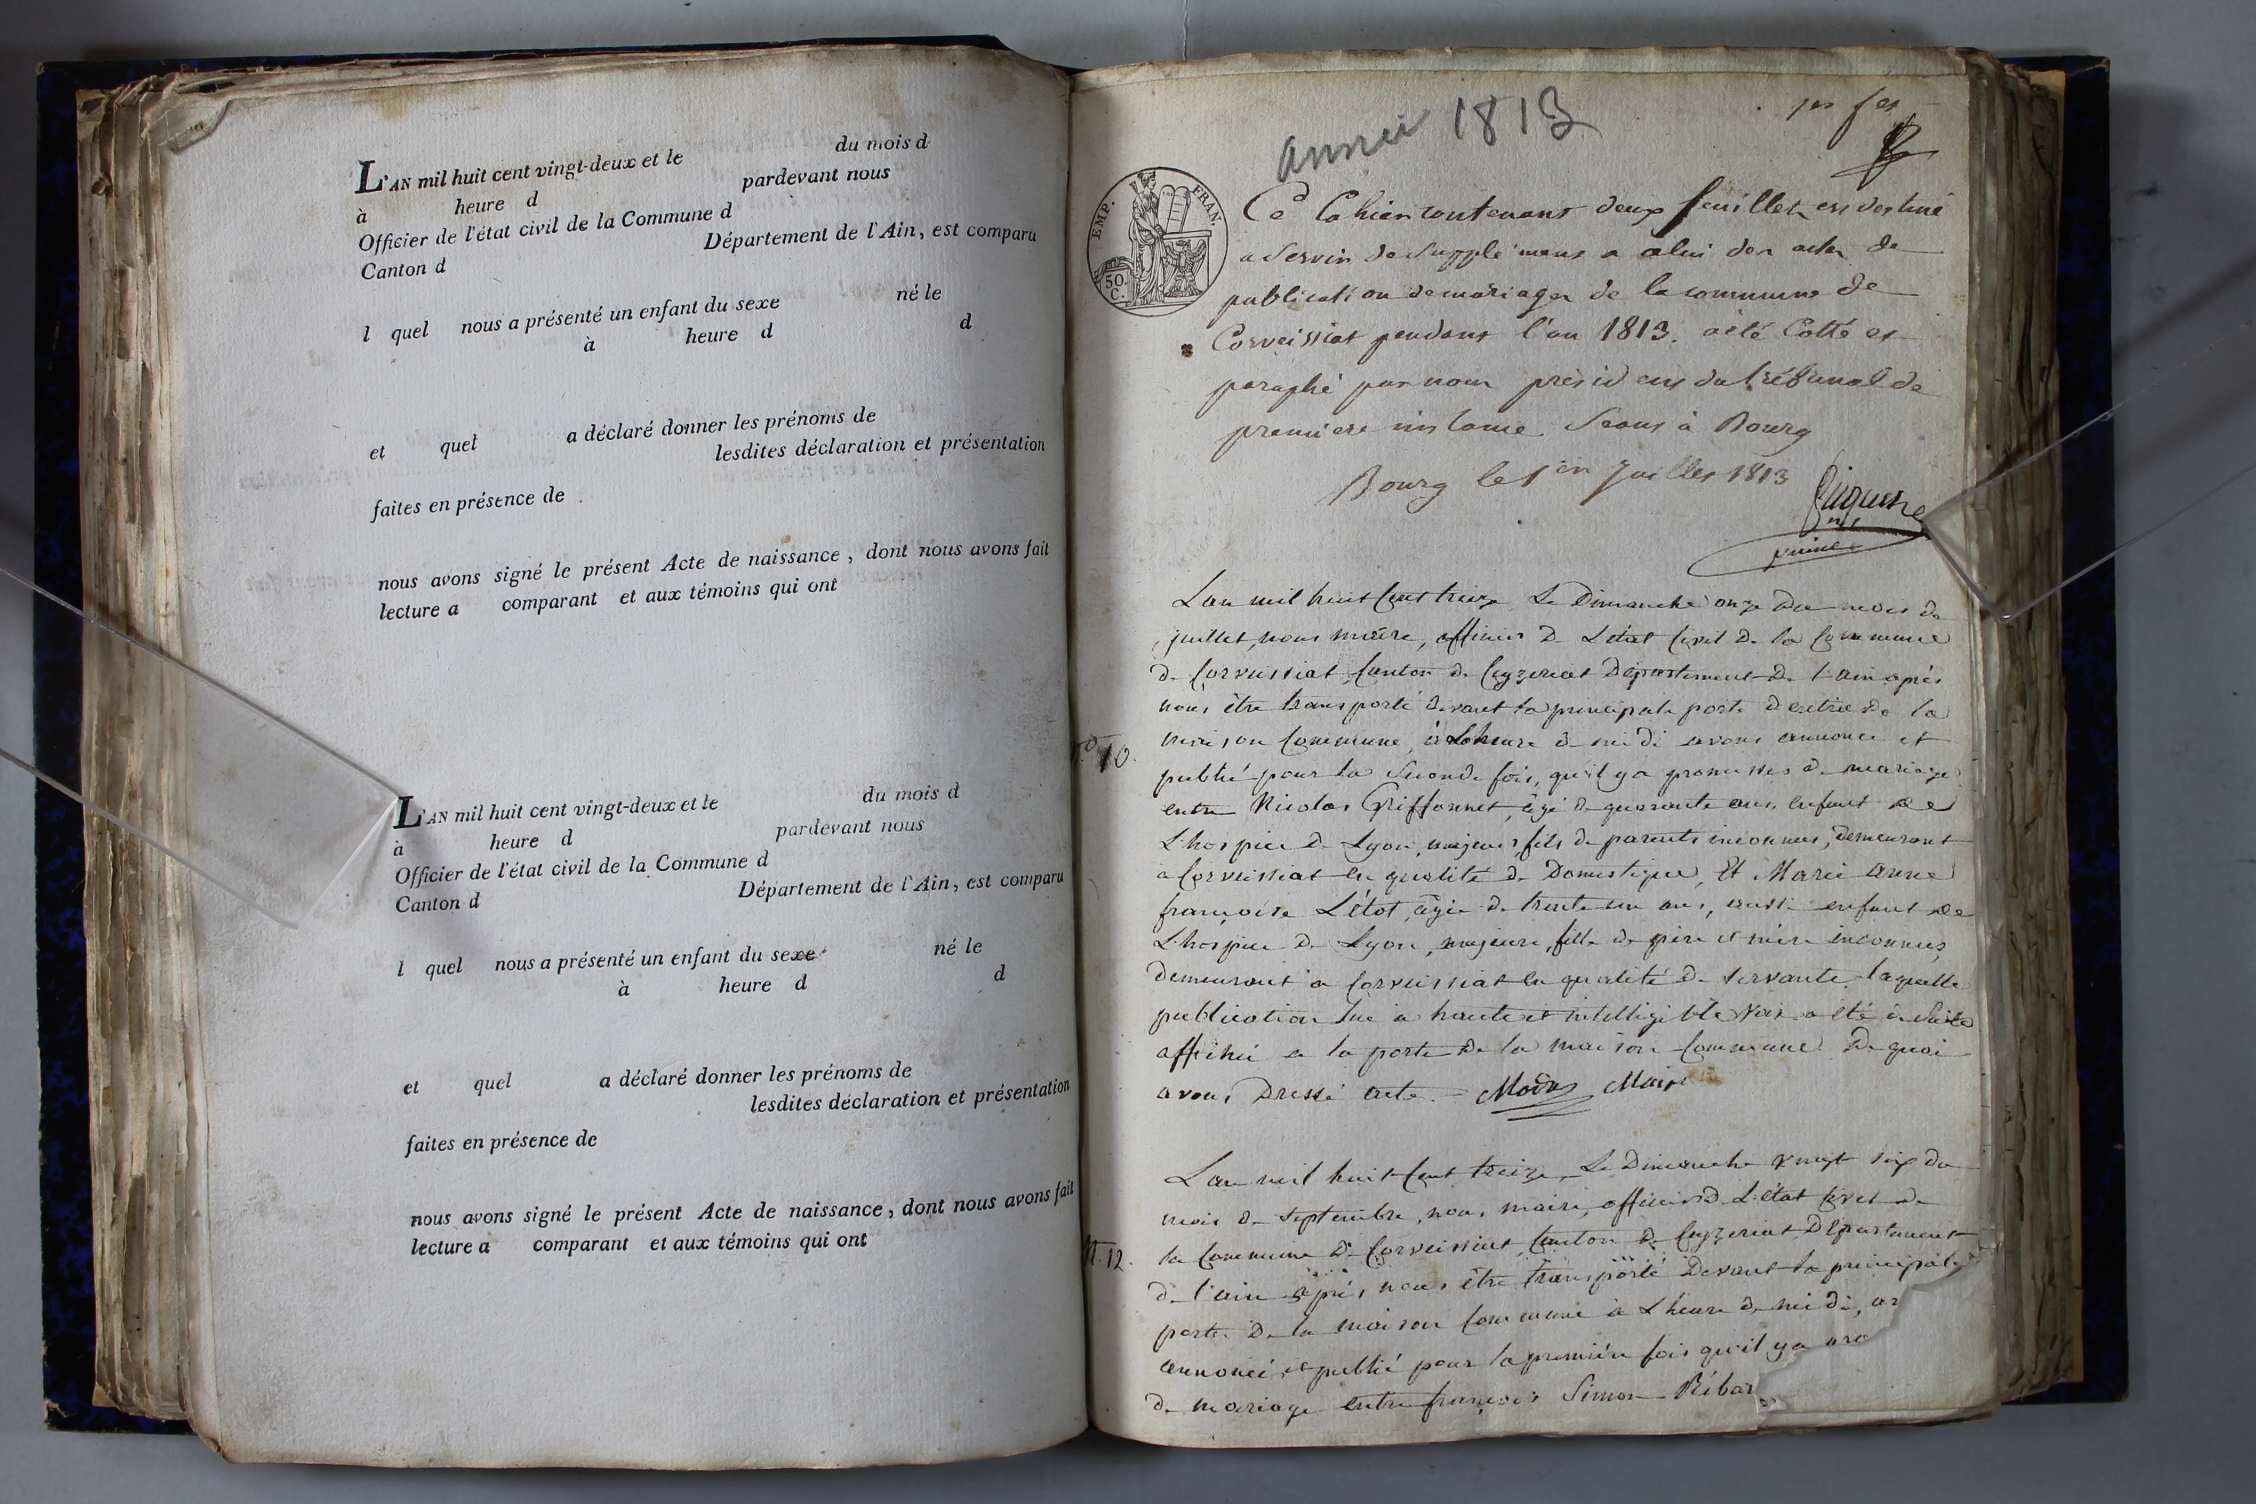 L'AN mil huit cent vingt-deux et le du mois d
à heure d pardevant nous
Officier de l'état civil de la Commune d
Canton d Département de l'Ain, est comparu
l quel nous a présenté un enfant du sexe né le
à heure d d
et quel a déclaré donner les prénoms de
lesdites déclaration et présentation
faites en présence de
nous avons signé le présent Acte de naissance, dont nous avons fait
lecture a comparant et aux témoins qui ont
L'AN mil huit cent vingt-deux et le du mois d
à heure d pardevant nous
Officier de l'état civil de la Commune d
Canton d Département de l'Ain, est comparu
l quel nous a présenté un enfant du sexe né le
à heure d d
et quel a déclaré donner les prénoms de
lesdites déclaration et présentation
faites en présence de
nous avons signé le présent Acte de naissance, dont nous avons fait
lecture a comparant et aux témoins qui ont
année 1813
EMP. FRAN.
50.
C.
Ce Cahier contenant deux feuillets est destiné
a servir de supplément a celui des actes de
publication de mariages de la commune de
Corveissiat pendant l'an 1813. a été Cotté et
paraphé par nous président du tribunal de
premiere instance Séant à Bourg
Bourg le 1er Juillet 1813
L'an mil huit Cent treize Le Dimanche onze Du mois de
juillet, nous maire, officier De L'état Civil De la Commune
De Corveissiat Canton De Ceyzeriat Departement De l'ain après
nous être transporté Devant la principale porte D'entrée De la
maison Commune, à L'heure De midi avons annoncé et
publié pour la Seconde fois, qu'il y a promesses De mariage
No 10.
entre Nicolas Griffonnet, âgé De quarante ans, enfant De
L'hospice De Lyon, majeur, fils De parents inconnus, Demeurant
à Corveissiat en qualité De Domestique, Et Marie anne
françoise L'étot, âgée De trente un ans, aussi enfant De
L'hospice De Lyon, majeure, fille De père et mère inconnus,
Demeurant à Corveissiat en qualité De servante laquelle
publication lue a haute et intelligible voix a été
affiché a la porte De la maison Commune De quoi
avons Dressé acte. Maire
L'an mil huit Cent treize Le Dimanche vingt six du
mois De septembre, nous maire, officier De L'état Civil De
la Commune De Corveissiat Canton De Ceyzeriat Département
N. 12.
De l'ain après nous être transporté Devant la principale
porte De la maison Commune à L'heure De midi, av
annoncé et publié pour la première fois qu'il y a pro
De mariage entre françois Simon Ribar